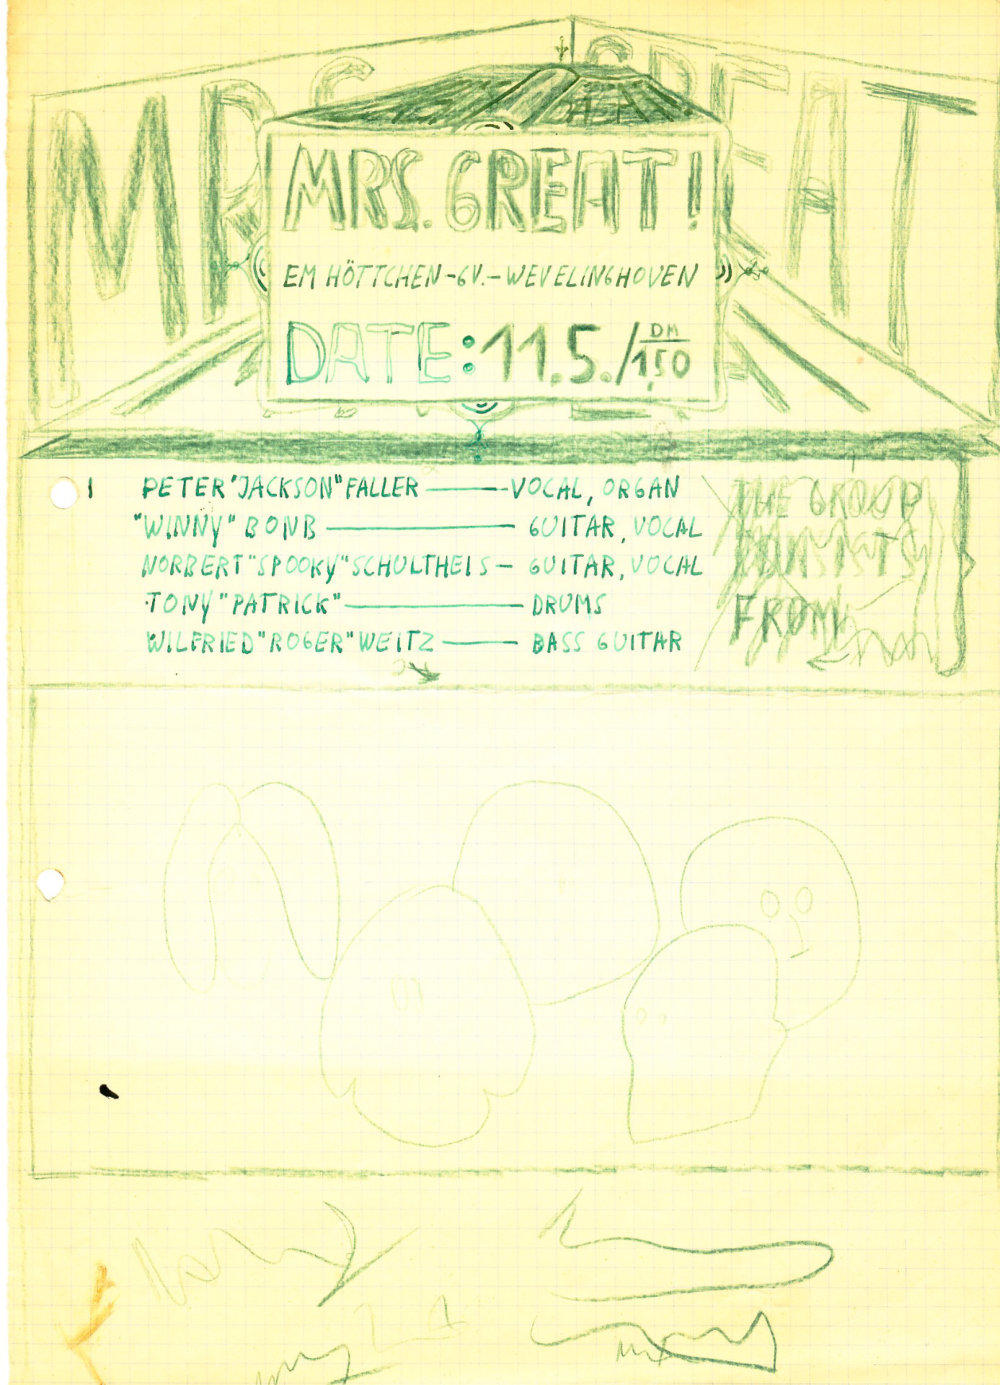 MRS. GREAT
MRS. GREAT!
EM HÖTTCHEN-GV.-WEVELINGHOVEN
DATE: 11.5./DM 1,50
1 PETER "JACKSON" FALLER ——— VOCAL, ORGAN
"WINNY" BONB ——— GUITAR, VOCAL
NORBERT "SPOOKY" SCHULTHEIS — GUITAR, VOCAL
TONY "PATRICK" ——— DRUMS
WILFRIED "ROGER" WEITZ ——— BASS GUITAR
THE GROUP
CONSISTS
FROM